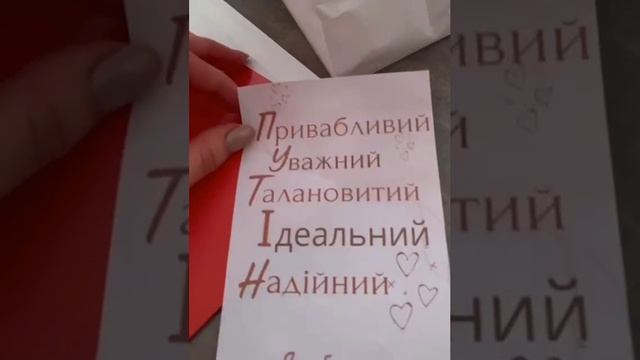 Привабливий
Уважний
Талановитий
Ідеальний
Надійний